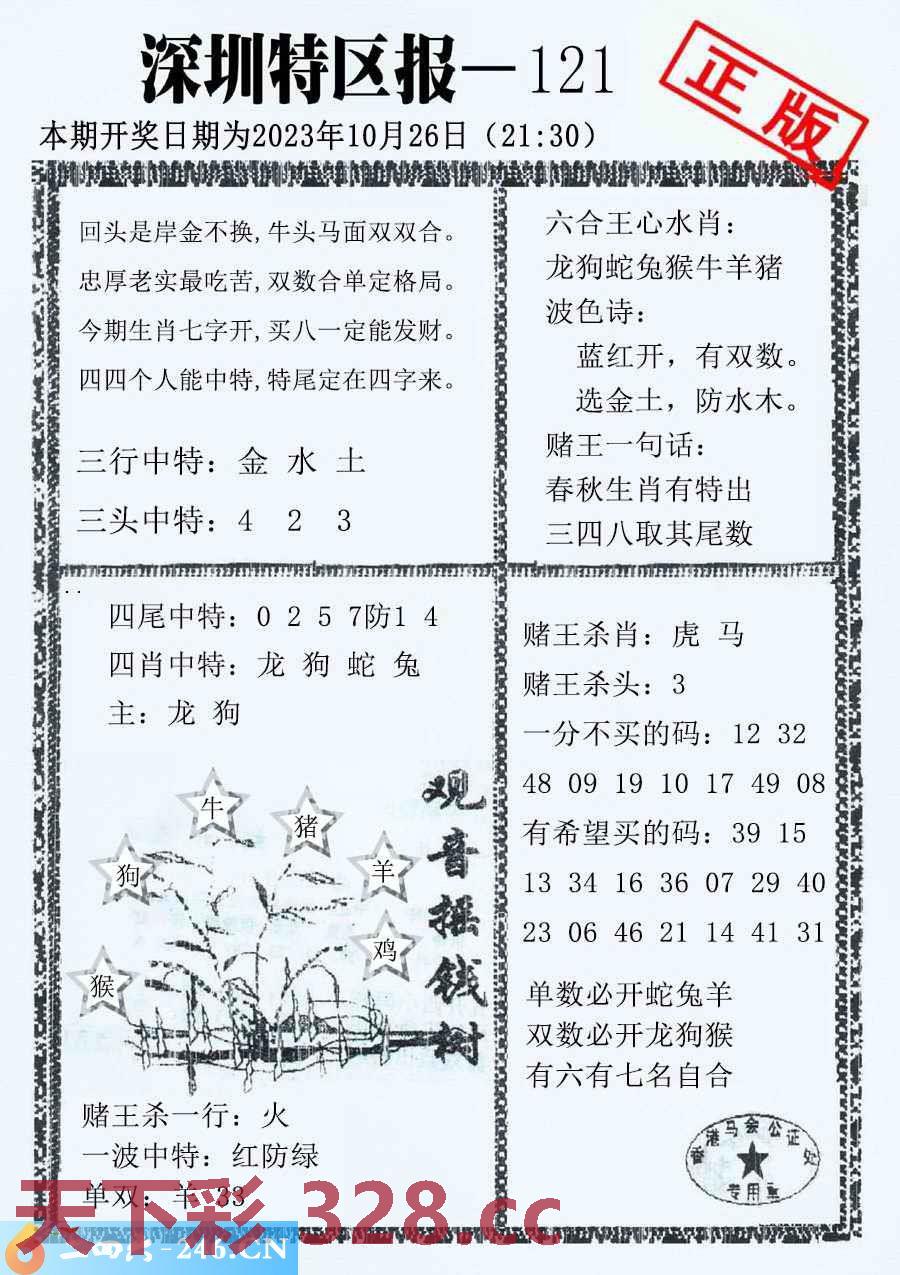 深圳特区报—121
正版
本期开奖日期为2023年10月26日（21:30）
回头是岸金不换,牛头马面双双合。
忠厚老实最吃苦,双数合单定格局。
今期生肖七字开,买八一定能发财。
四四个人能中特,特尾定在四字来。
三行中特：金 水 土
三头中特：4 2 3
六合王心水肖：
龙狗蛇兔猴牛羊猪
波色诗：
蓝红开，有双数。
选金土，防水木。
赌王一句话：
春秋生肖有特出
三四八取其尾数
四尾中特：0 2 5 7防1 4
四肖中特：龙 狗 蛇 兔
主：龙 狗
牛
猪
狗
羊
鸡
猴
观音摇钱树
赌王杀一行：火
一波中特：红防绿
单双：羊 33
赌王杀肖：虎 马
赌王杀头：3
一分不买的码：12 32
48 09 19 10 17 49 08
有希望买的码：39 15
13 34 16 36 07 29 40
23 06 46 21 14 41 31
单数必开蛇兔羊
双数必开龙狗猴
有六有七名自合
香港马会公证处
专用章
天下彩 328.cc
-246.CN